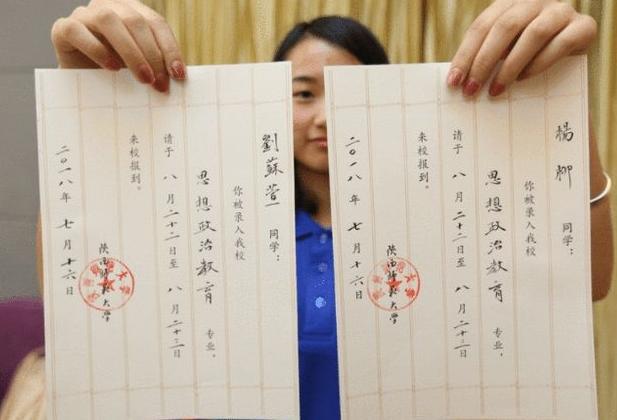 劉蘇萱 同学：
你被录入我校
思想政治教育 专业，
请于 八月二十二日至 八月二十三日
来校报到。
陕西師範大学
二〇一八年七月十六日
楊柳 同学：
你被录入我校
思想政治教育 专业，
请于 八月二十二日至 八月二十三日
来校报到。
陕西師範大学
二〇一八年七月十六日